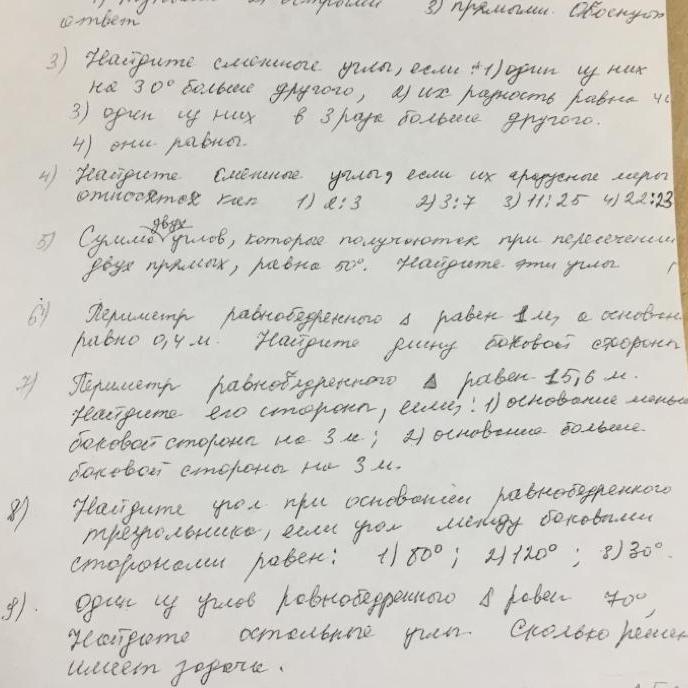 острыми 3) прямыми. Обоснуйт
ответ
3) Найдите смежные углы, если: 1) один из них
на 30° больше другого, 2) их разность равна
3) один из них в 3 раза больше другого.
4) они равны.
4) Найдите смежные углы, если их градусные меры
относятся как 1) 2:3 2) 3:7 3) 11:25 4) 22:23
двух
5) Сумма углов, которые получаются при пересечении
двух прямых, равна 50°. Найдите эти углы
6) Периметр равнобедренного Δ равен 1 м, а основан
равно 0,4 м. Найдите длину боковой стороны
7) Периметр равнобедренного Δ равен 15,6 м.
Найдите его стороны, если: 1) основание меньш
боковой стороны на 3 м; 2) основание больше
боковой стороны на 3 м.
8) Найдите угол при основании равнобедренного
треугольника, если угол между боковыми
сторонами равен: 1) 80°; 2) 120°; 3) 30°.
9). Один из углов равнобедренного Δ равен 70°,
Найдите остальные углы. Сколько решен
имеет задача.